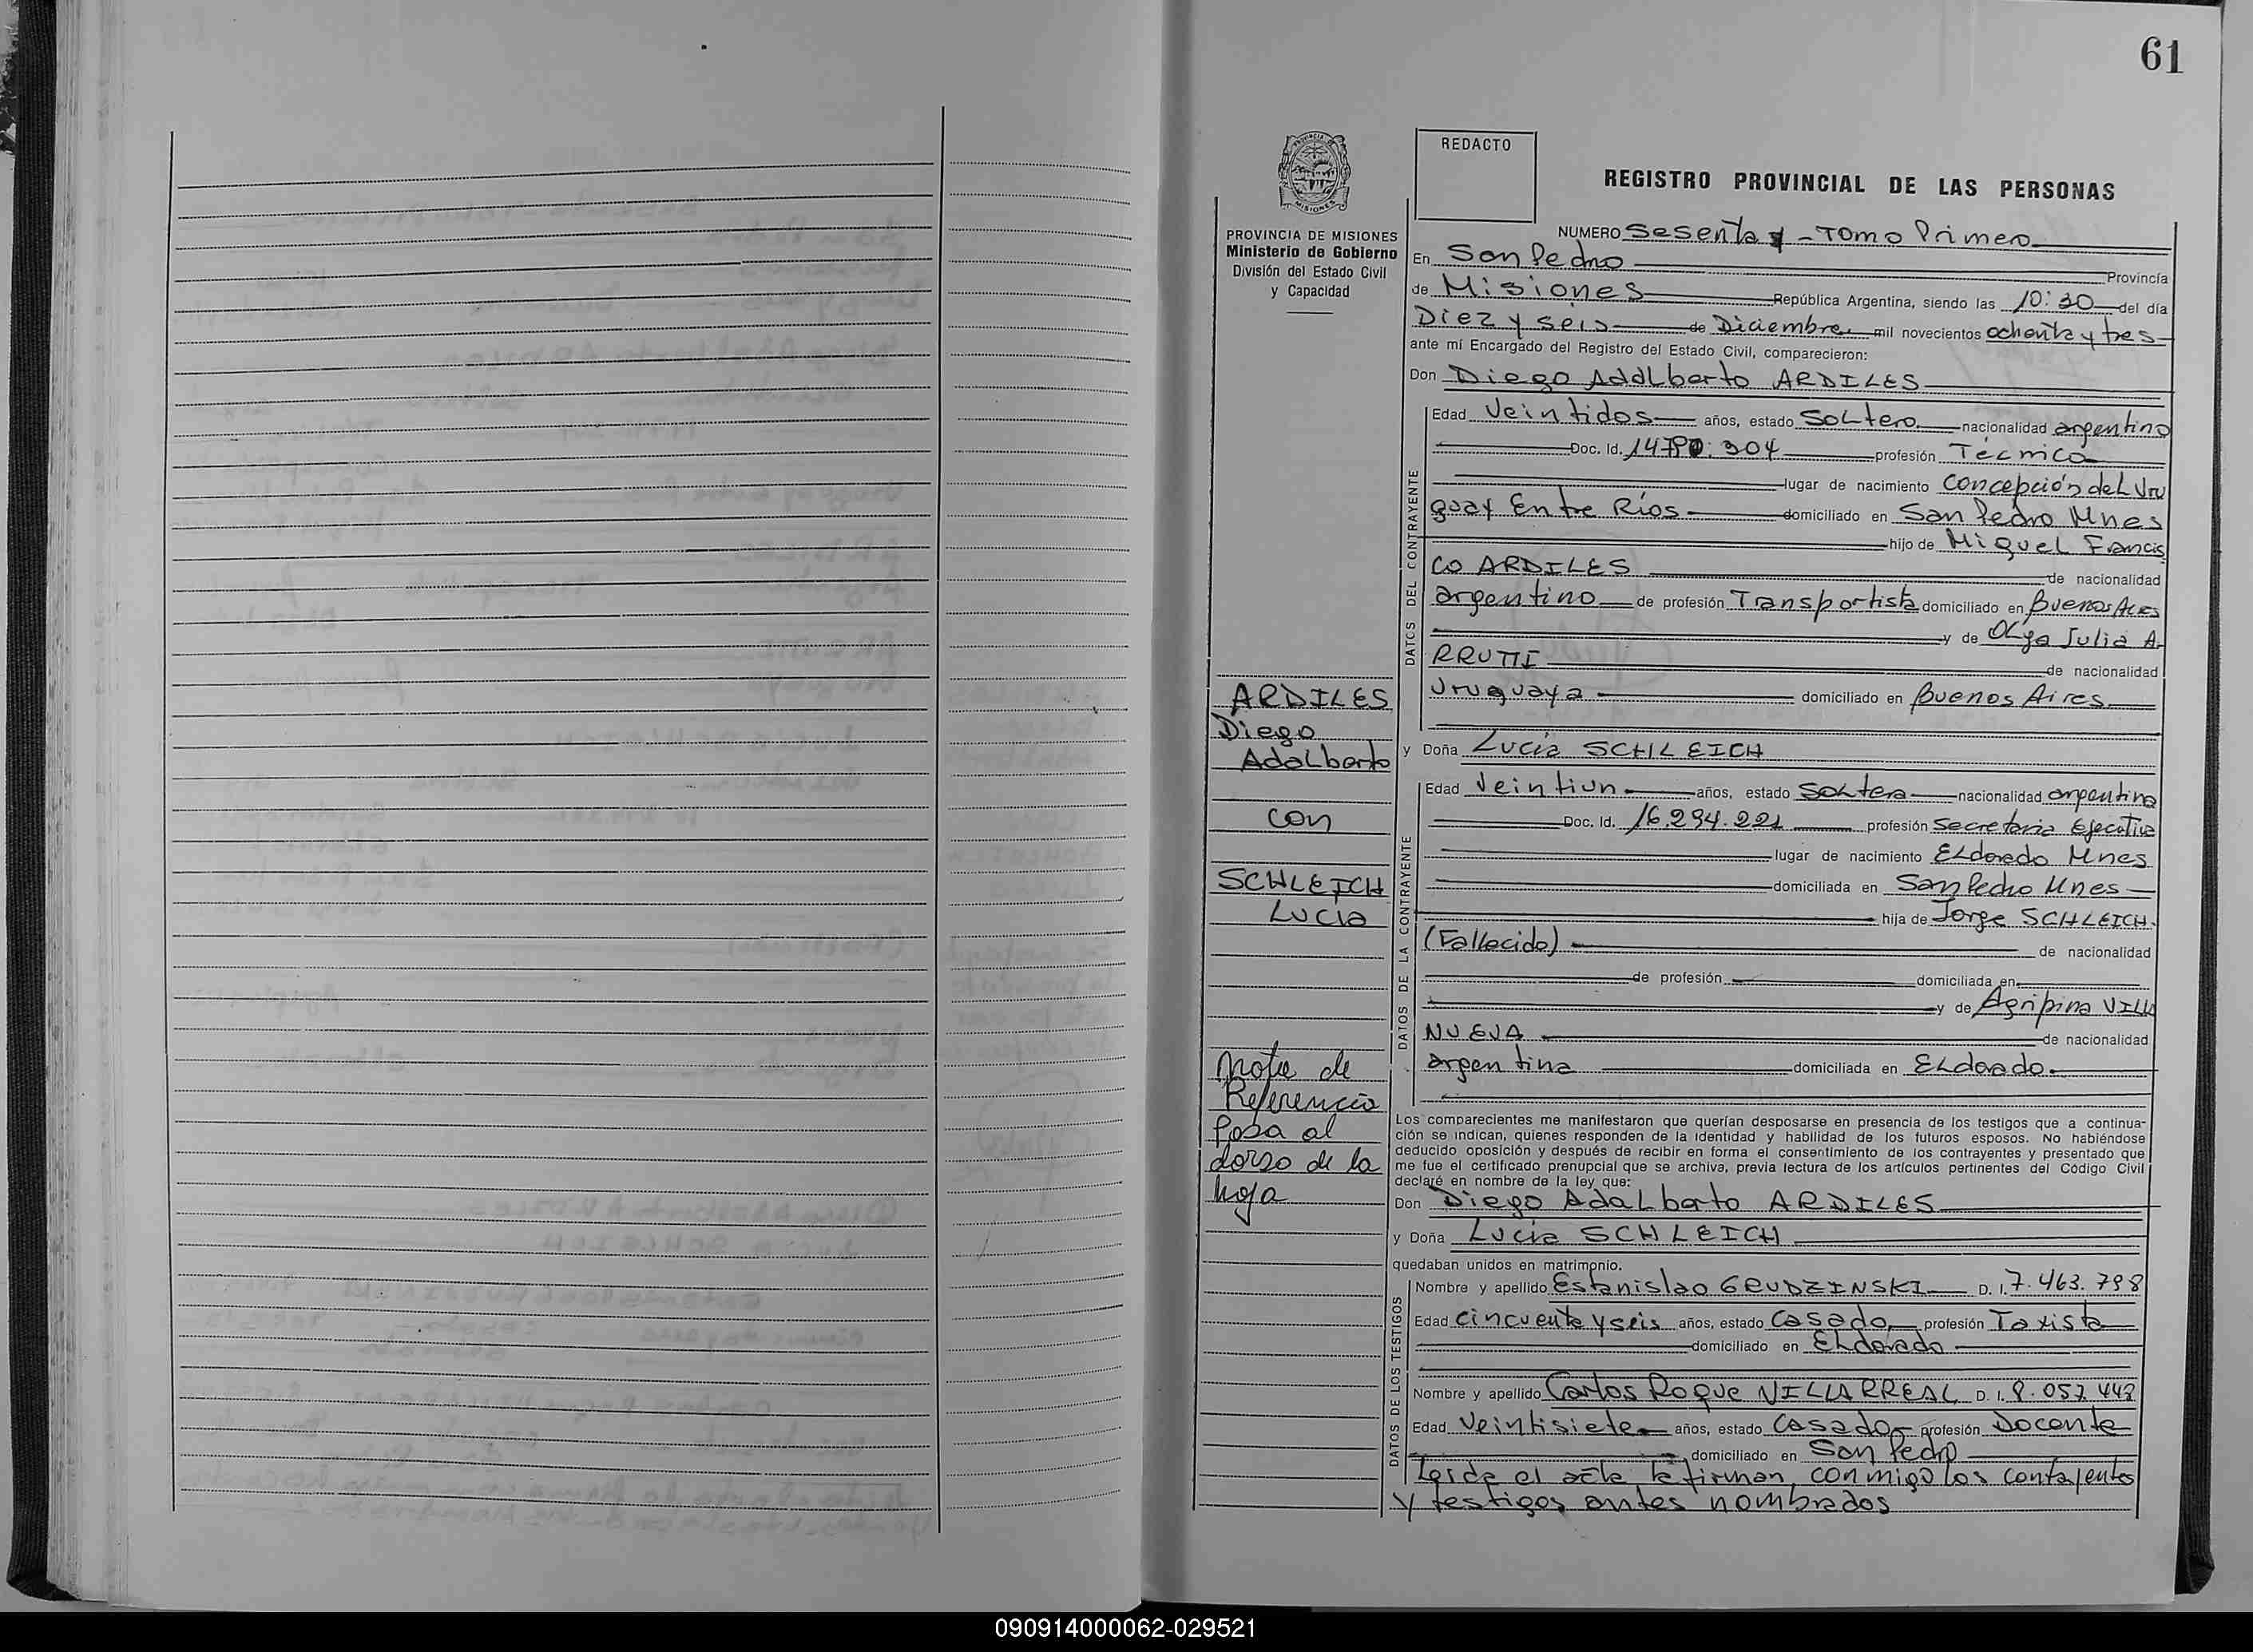 61
REDACTO
REGISTRO PROVINCIAL DE LAS PERSONAS
PROVINCIA DE MISIONES
Ministerio de Gobierno
División del Estado Civil
y Capacidad
NUMERO Sesenta - Tomo Primero
En San Pedro Provincia
de Misiones República Argentina, siendo las 10:30 del día
Diez y seis de Diciembre mil novecientos ochenta y tres
ante mí Encargado del Registro del Estado Civil, comparecieron:
Don Diego Adalberto ARDILES
DATOS DEL CONTRAYENTE
Edad Veintidos años, estado Soltero nacionalidad argentino
Doc. Id. profesión Técnico
lugar de nacimiento Concepción del Uru
guay Entre Ríos domiciliado en San Pedro Mnes
hijo de Miguel Francis
co ARDILES de nacionalidad
argentino de profesión Transportista domiciliado en Buenos Aires
y de Olga Julia A
RRUTI de nacionalidad
Uruguaya domiciliado en Buenos Aires
ARDILES
Diego
Adalberto
con
SCHLEICH
Lucia
y Doña Lucía SCHLEICH
DATOS DE LA CONTRAYENTE
Edad Veintiun años, estado Soltera nacionalidad argentina
Doc. Id. 16.294.221 profesión Secretaria Ejecutiva
lugar de nacimiento Eldorado Mnes
domiciliada en San Pedro Mnes
hija de Jorge SCHLEICH
(Fallecido) de nacionalidad
de profesión domiciliada en
y de Agripina VILLA
NUEVA de nacionalidad
argentina domiciliada en Eldorado.
Nota de
Referencia
Pasa al
dorso de la
hoja
Los comparecientes me manifestaron que querían desposarse en presencia de los testigos que a continua-
ción se indican, quienes responden de la identidad y habilidad de los futuros esposos. No habiéndose
deducido oposición y después de recibir en forma el consentimiento de los contrayentes y presentado que
me fue el certificado prenupcial que se archiva, previa lectura de los artículos pertinentes del Código Civil
declaré en nombre de la ley que:
Don Diego Adalberto ARDILES
y Doña Lucía SCHLEICH
quedaban unidos en matrimonio.
DATOS DE LOS TESTIGOS
Nombre y apellido Estanislao GRUDZINSKI D. I. 7.463.798
Edad Cincuenta y seis años, estado Casado profesión Taxista
domiciliado en Eldorado
Nombre y apellido Carlos Roque VILLARREAL D. I. 8.057.443
Edad Veintisiete años, estado Casado profesión Docente
domiciliado en San Pedro
Leida el acta la firman conmigo los contrayentes
y testigos antes nombrados
090914000062-029521